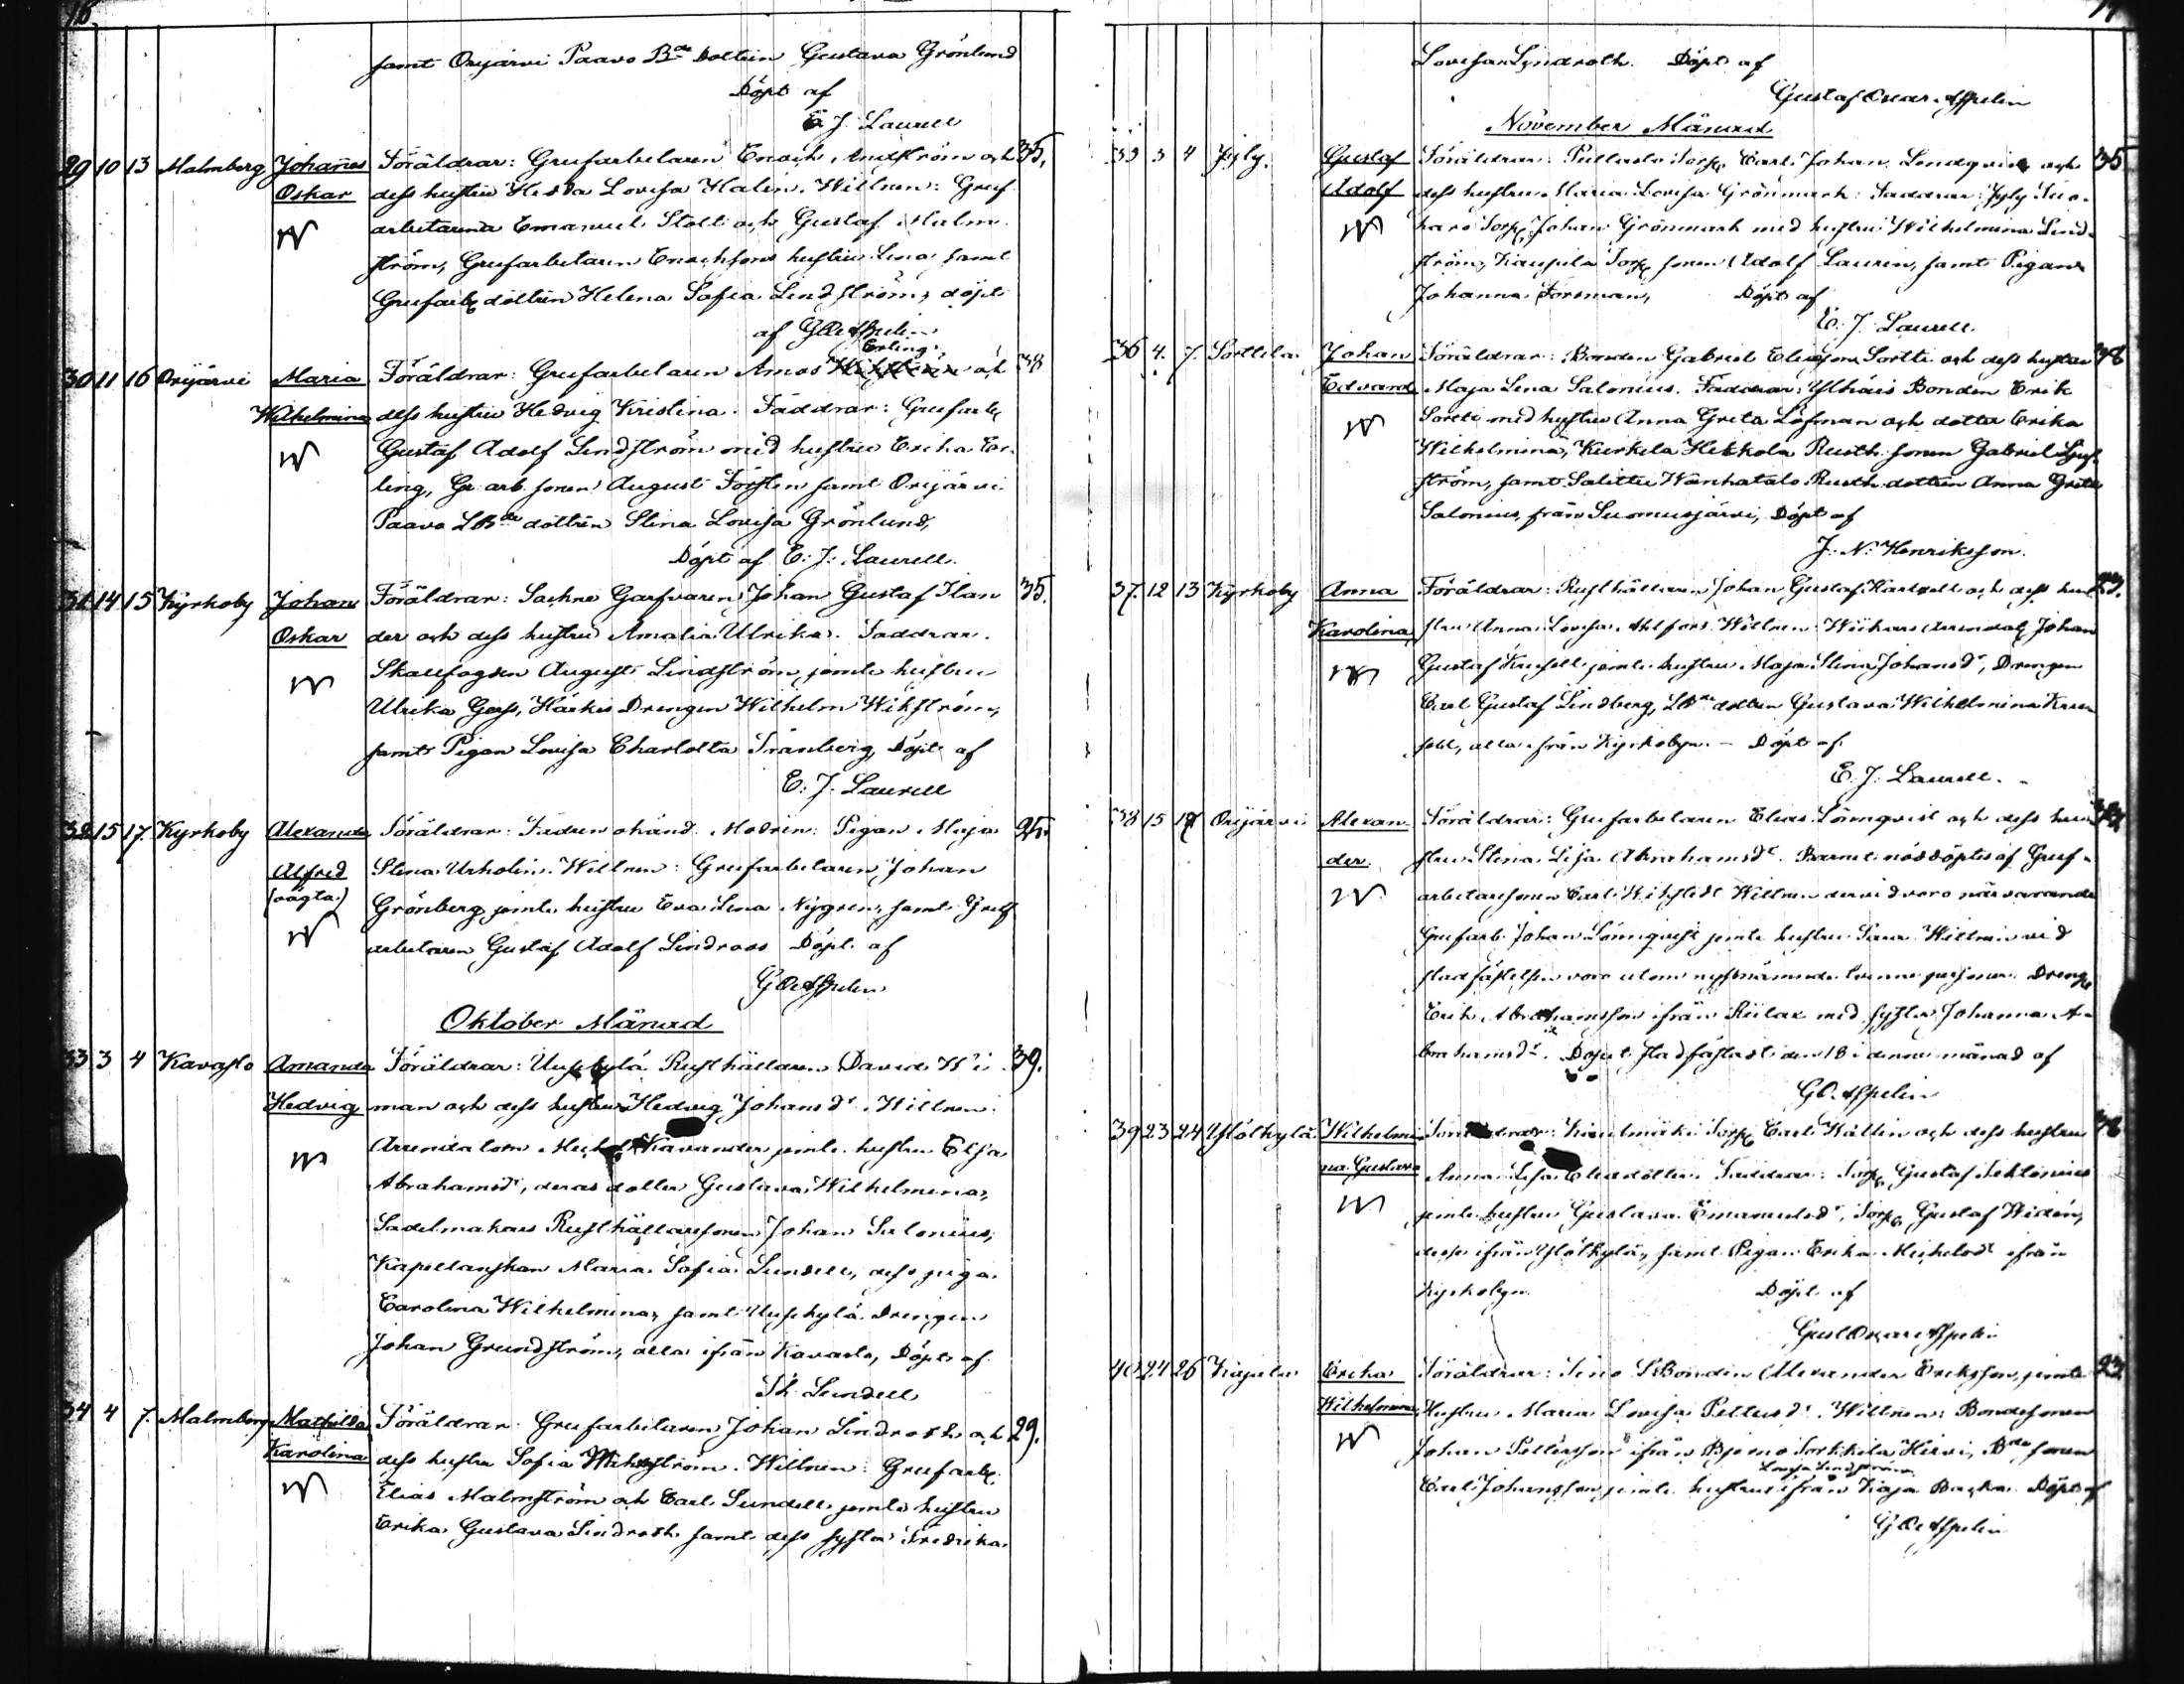 16.
samt Orijärvi Paavo Bde dottren Gustava Grönlund
Döpt af
E. J. Laurell
29 10 13 Malmberg Johannes Föräldrar: Grufarbetaren Enoch Andström och 35.
Oskar dess hustru Hedda Lovisa Halin. Wittnen: Gruf
arbetarena Emanuel Stolt och Gustaf Malm
ström, Grufarbetaren Enochsons hustru Lena samt
Grufarb. dottren Helena Sofia Lindström, döpt
af G O Aspelin
Erling
30 11 16 Orijärvi Maria Föräldrar: Grufarbetaren Amos och 38
Wilhelmina dess hustru Hedvig Kristina. Faddrar: Grufarb.
Gustaf Adolf Lindström med hustru Erika Er-
ling, Gr. arb. sonen August Forsten samt Orijärvi
Paavo LBde dottren Stina Lovisa Grönlund,
Döpt af E. J. Laurell.
31 14 15 Kyrkoby Johan Föräldrar: Sockne Garfvaren Johan Gustaf Ilan 35.
Oskar der och dess hustru Amalia Ulrika. Faddrar.
Skaufogden August Lindström, jemte hustru
Ulrika Gers, Härkes Drengen Wilhelm Wikström,
samt Pigan Lovisa Charlotta Tranberg, Döpt af
E. J. Laurell
32 15 17. Kyrkoby Alexander Föräldrar: Fadren okänd. Modren: Pigan Maja
Alfred Stina Urholin. Wittnen: Grufarbetaren Johan
(oägta.) Grönberg jemte hustru Eva Lena Nygren, samt Gruf
arbetaren Gustaf Adolf Lindroos Döpt af
G O Aspelin
Oktober Månad
33 3 4 Kavasto Amanda Föräldrar: Uusikylä Rusthållaren David Wi 39.
Hedvig man och dess hustru Hedvig Johansdr. Wittnen:
Arrendatorn Michel Kavander jemte hustru Elsa
Abrahamsdr, deras dotter Gustava Wilhelmina,
Sadelmakars Rusthållaresonen Johan Salonius,
Kapellanskan Maria Sofia Lundell, dess piga
Carolina Wilhelmina, samt Uusikylä Drengen
Johan Grundström, alla ifrån Kavasto, Döpt af
Th. Lundell
34 4 7. Malmberg Mathilda Föräldrar. Grufarbetaren Johan Lindroth och 29.
Karolina dess hustru Sofia Wikström. Wittnen: Grufarb.
Elias Malmström och Carl Lundell jemte hustru
Erika Gustava Lindroth samt dess syster Fredrika
Lovisa Lindroth. Döpt af
Gustaf Oscar Aspelin
November Månad
35 3 4 Jyly. Gustaf Föräldrar: Torp. Carl Johan Lindqvist och 35
Adolf dess hustru Maria Lovisa Grönmark: Faddrar: Jyly
Torp. Johan Grönmark med hustru Wilhelmina Lind-
ström, Kaupila Torp. sonen Adolf Laurin, samt Pigan
Johanna Forsman, Döpt af
E. J. Laurell.
36 4. 7. Sorttila Johan Föräldrar: Bonden Gabriel Eliasson Sortti och dess hustru 38
Edvard Maja Lena Salonius. Faddrar: Bonden Erik
Sortti med hustru Anna Greta Löfman och dotter Erika
Wilhelmina, Kurkela Heikkola Rusth. sonen Gabriel
ström, samt Salittu Wanhatalo Rusth. dottren Anna Greta
Salonius, från Suomusjärvi, Döpt af
J. N. Henriksson.
37. 12 13 Kyrkoby Anna Föräldrar: Rusthållaren Johan Gustaf och dess hu 23.
Karolina stru Anna Lovisa Ahlfors. Wittnen: Arrendat. Johan
Gustaf Krusell jemte hustru Maja Stina Johansdr, Drengen
Carl Gustaf Lindberg, LBde dottren Gustava Wilhelmina
alla från Kyrkobyn. – Döpt af
E. J. Laurell. –
38 15 17 Orijärvi Alexan- Föräldrar: Grufarbetaren Elias Lönnqvist och dess hu
der. stru Stina Lisa Abrahamsdr. Barnet nöddöptes af Gruf-
arbetaresonen Carl Wittnen dervid voro närvarande
Grufarb. Johan Lönnqvist jemte hustru Sara. Wittnen vid
stadfästelsen voro utom nyssnämnde tvenne personer Dreng.
Erik Abrahamsson ifrån Kiilax med syster Johanna A-
brahamsdr. Dopet stadfästat den 18 i denne månad af
G O. Aspelin
39 23 24 Ylökylä Wilhelmi- Föräldrar: Torp. Carl Wallin och dess hustru
na Gustava Anna Lisa Faddrar: Torp. Gustaf
jemte hustru Gustava Emanuelsdr, Torp. Gustaf Widén,
desse ifrån Ylökylä, samt Pigan Erika Michelsdr ifrån
Kyrkobyn Döpt af
Gust Oscar Aspelin
40 24 26 Erika Föräldrar: LBonden Alexander Eriksson, jemte 23.
Wilhelmina Hustru Maria Lovisa Pettersdr. Wittnen: Bondesonen
Johan Pettersson ifrån Bjerno Hirvi, Bde sonen
Lovisa Lindström
Carl Johansson, jemte hustru ifrån Backa Döpt af
G O Aspelin